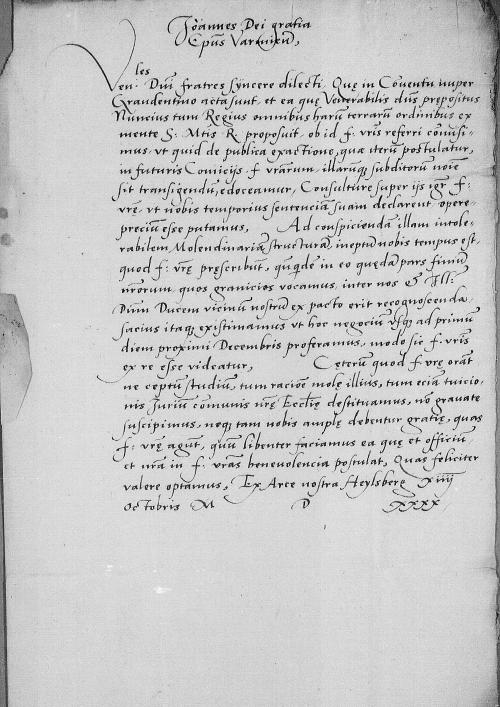 Joannes Dei gratia
Ep̄us Varmień,
les
Ven. Dn̄i fratres syncere dilecti. Quę in Cōventu nuper
Graudentino acta sunt, et ea quę Venerabilis dn̄s prępositus
Nuncius tum Regius omnibus harū terrarū ordinibus ex
mente S: Mtis R. proposuit, ob id f. vr̄is referri cōmisi-
mus, ut quid de publica exactione, qua iterū postulatur,
in futuris Comicijs f. vrārum, illarūq; subditorū noīe
sit transigendū, edoceamur, Consulture super ijs igr̄ f:
vrę, ut nobis temporius sentenciā suam declarent opere-
precium esse putamus, Ad conspiciendā illam intole-
rabilem Molendinariā structurā, ineptū nobis tempus est,
quod f: vrę pręscribūt, quādē in eo quędā pars finiū
nr̄orum, quos granicios vocamus, inter nos & Ill:
Dn̄m Ducem vicinū nostrū ex pacto erit recognoscenda
sacius itaq; existimamus ut hoc negociū usq; ad primū
diem proximi Decembris proferamus, modo sic f. vr̄is
ex re esse videatur, Cęterū quod f: vrę orāt
ne cęptū studiū, tum raciōe molę illius, tum eciā tuicio-
nis Jurium cōmunis nrę Eccl̄ię destituamus, nō gravate
suscipimus, neq; tam nobis amplę debentur gratię, quas
f: vrę agūt, quū libenter faciamus ea quę et officiū
et nr̄a in f: vrās benevolencia postulat, Quas feliciter
valere optamus, Ex Arce nostra Heylsberg XIIII
Octobris M D XXXX